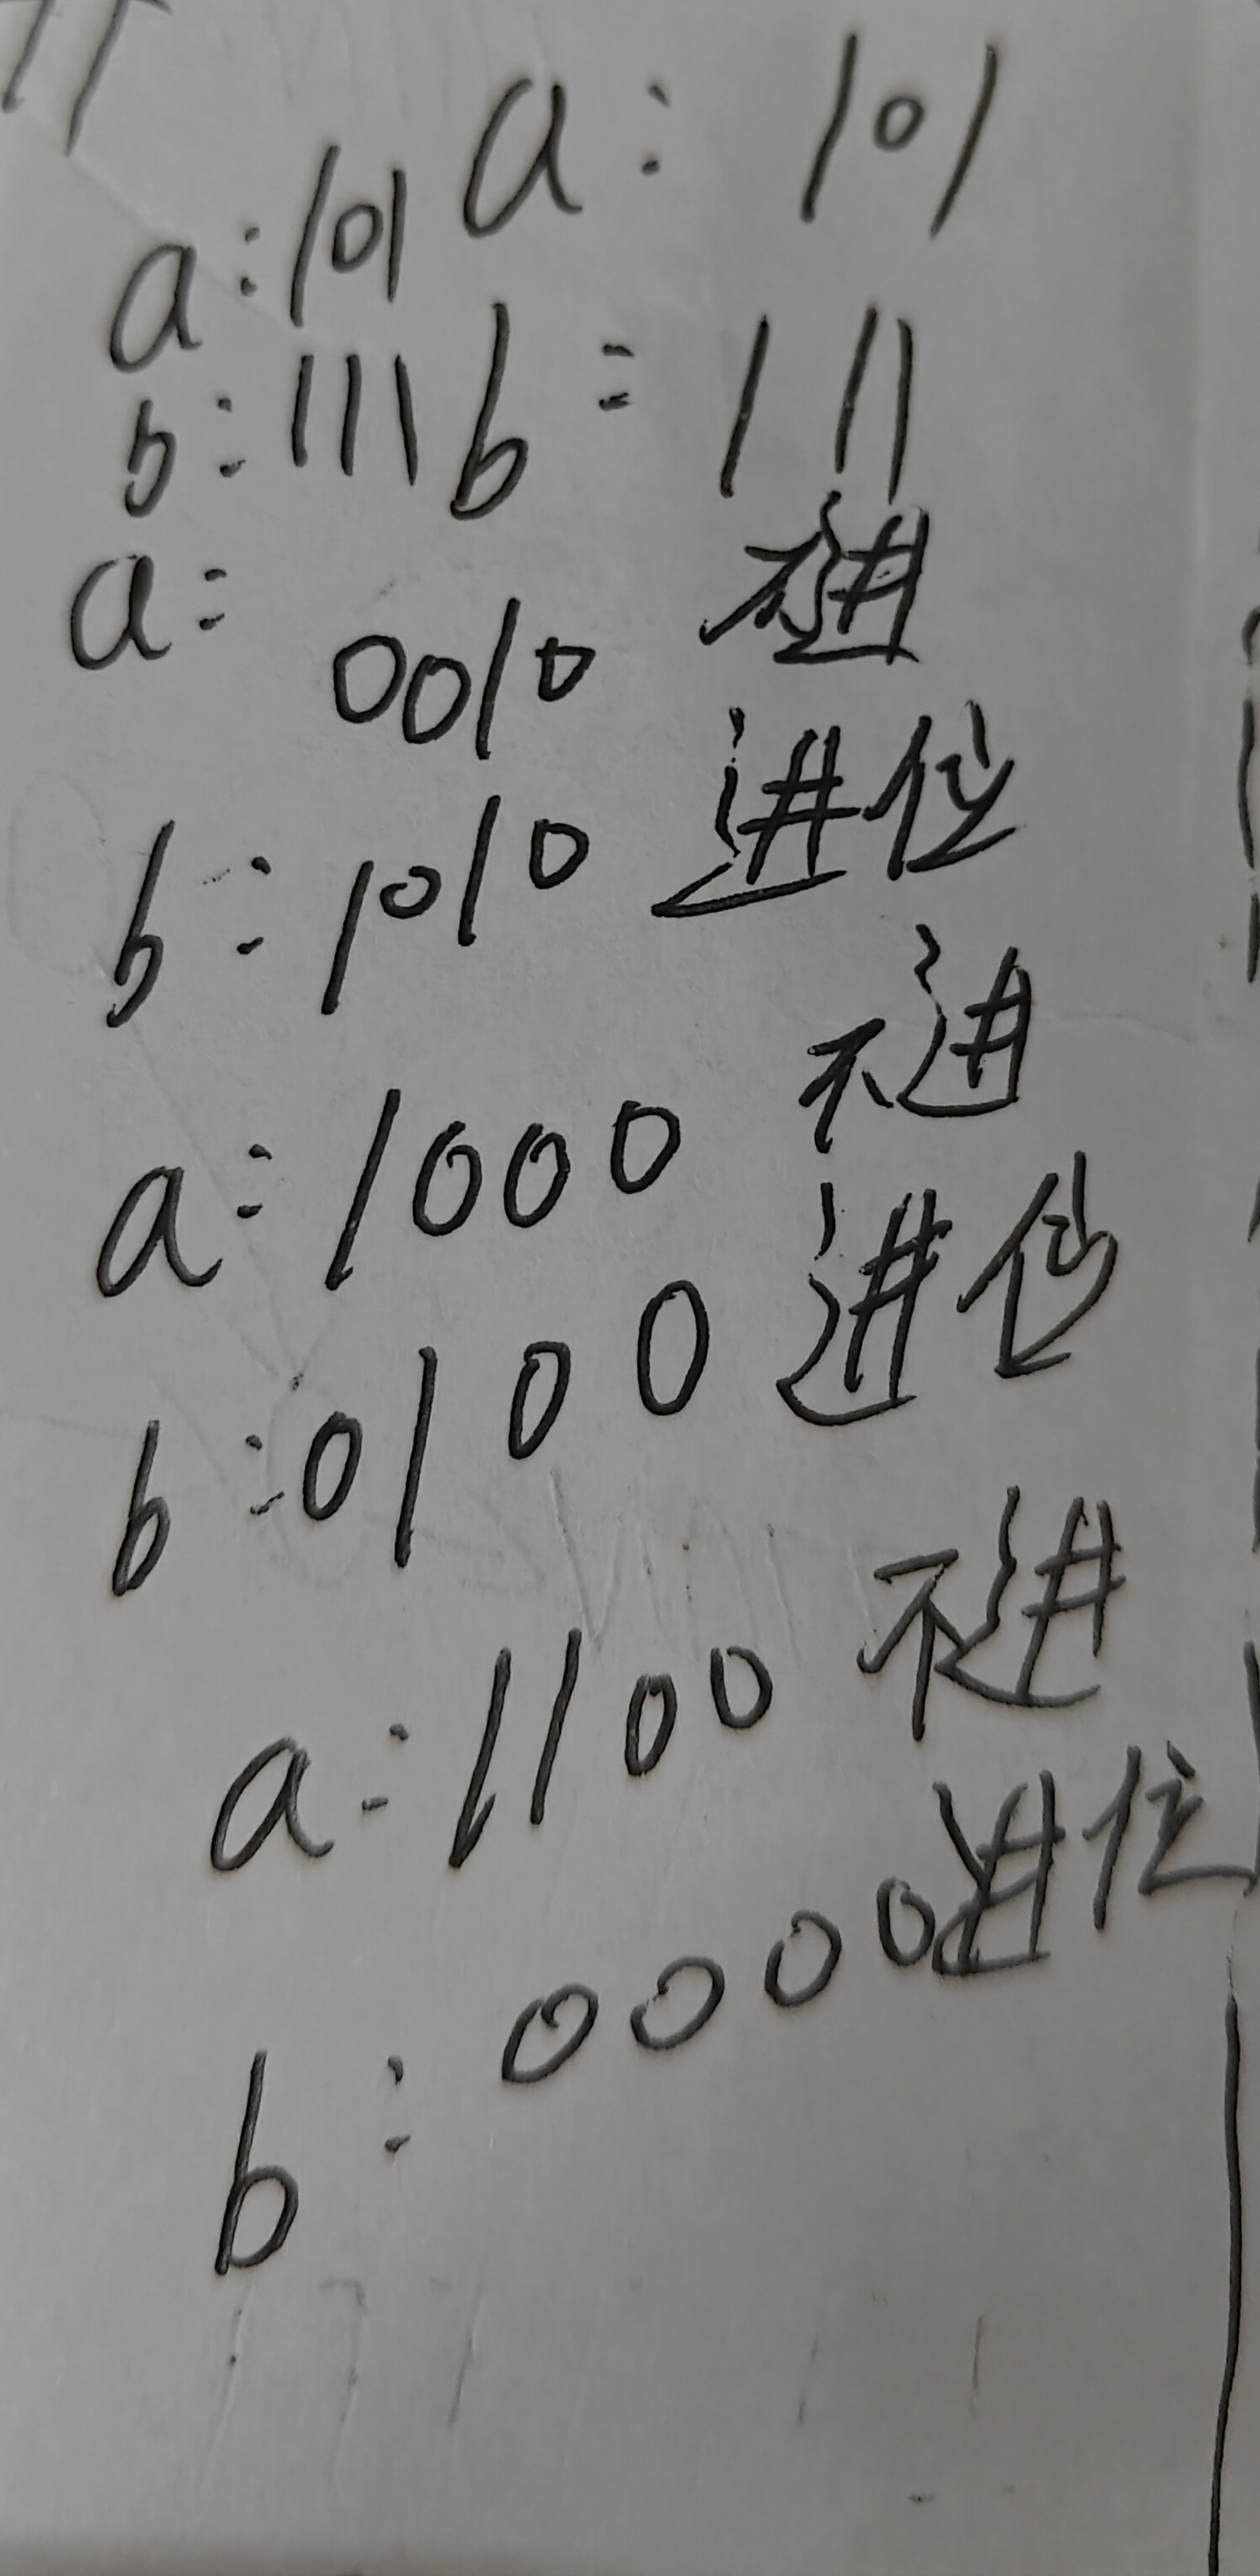 a: 101
a: 101
b: 111
b: 111
a: 0010 不进
b: 1010 进位
a: 1000 不进
b: 0100 进位
a: 1100 不进
b: 0000 进位